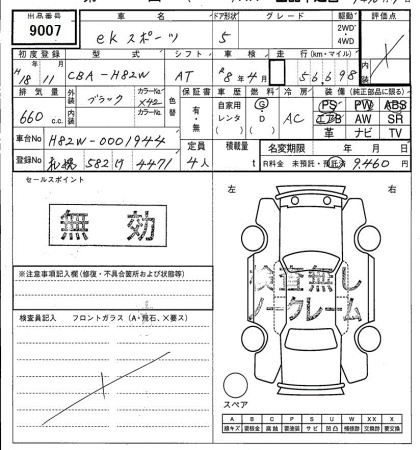 出品番号 車名 ドア形状 グレード 駆動 評価点
9007 ekスポーツ 5 2WD・4WD
初度登録 型式 シフト 車検 走行(km・マイル)
H18 11 CBA-H82W AT R8年4月 56698
排気量 外装 ブラック カラーNo. X42 色替 保証書 車歴 燃料 冷房 装備(純正部品に限る)
660c.c. 内装 カラーNo. 有・無 自家用 レンタ G・D AC PS PW ABS
エアB AW SR
革 ナビ TV
車台No H82W-0001944 定員 積載量 名変期限 年 月 日
登録No 札幌 582 け 4471 4人 t R料金 未預託・預託済 9,460円
セールスポイント 左 右
無効
検査無し
ノークレーム
※注意事項記入欄(修復・不具合箇所および状態等)
検査員記入 フロントガラス(A・飛石、×要ス)
スペア
A B C P S U W XX X
線キズ 要板金 腐蝕 要塗装 サビ 凹凸 補修跡 交換跡 要交換